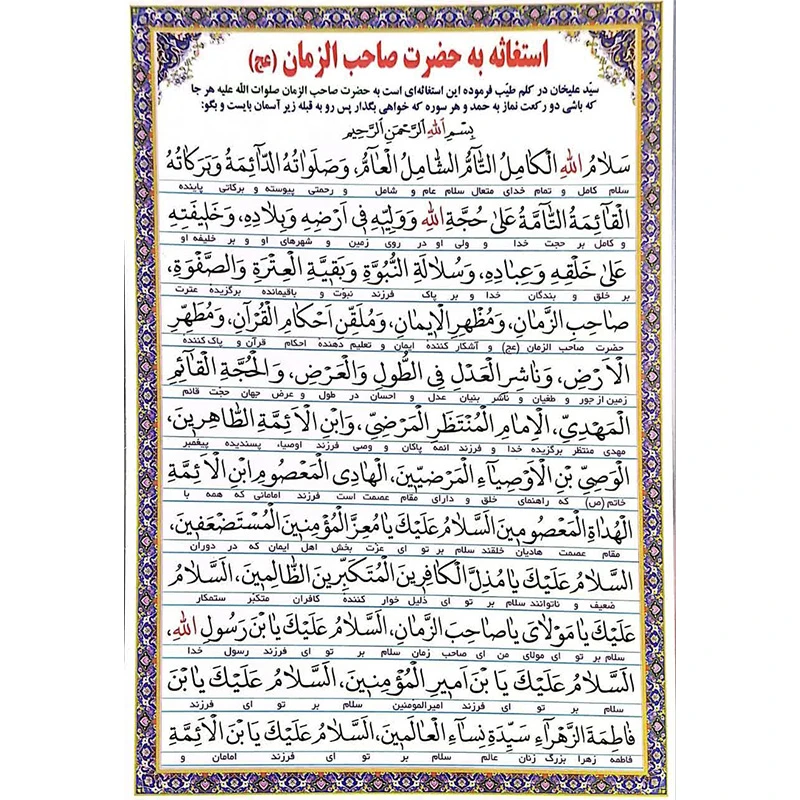 استغاثه به حضرت صاحب الزمان (عج)
سیّد علیخان در کلم طیّب فرموده این استغاثه‌ای است به حضرت صاحب الزمان صلوات الله علیه هر جا
که باشی دو رکعت نماز به حمد و هر سوره که خواهی بگذار پس رو به قبله زیر آسمان بایست و بگو:
بِسْمِ اللهِ الرَّحْمَنِ الرَّحِيمِ
سَلَامُ اللهِ الْكَامِلُ التَّآمُّ الشَّامِلُ الْعَآمُّ، وَصَلَوَاتُهُ الدَّآئِمَةُ وَبَرَكَاتُهُ
سلام کامل و تمام خدای متعال سلام عام و شامل و رحمتی پیوسته و برکاتی پاینده
الْقَآئِمَةُ التَّآمَّةُ عَلَىٰ حُجَّةِ اللهِ وَوَلِيِّهِ فِي اَرْضِهِ وَبِلَادِهِ، وَخَلِيفَتِهِ
و کامل بر حجت خدا و ولی او در روی زمین و شهرهای او و بر خلیفه او
عَلَىٰ خَلْقِهِ وَعِبَادِهِ، وَسُلَالَةِ النُّبُوَّةِ وَبَقِيَّةِ الْعِتْرَةِ وَالصَّفْوَةِ،
بر خلق و بندگان خدا و بر پاک فرزند نبوّت و باقیمانده برگزیده عترت
صَاحِبِ الزَّمَانِ، وَمُظْهِرِ الْاِيمَانِ، وَمُلَقِّنِ اَحْكَامِ الْقُرْآنِ، وَمُطَهِّرِ
حضرت صاحب الزمان (عج) و آشکار کنندهٔ ایمان و تعلیم دهندهٔ احکام قرآن و پاک کننده
الْاَرْضِ، وَنَاشِرِ الْعَدْلِ فِي الطُّولِ وَالْعَرْضِ، وَالْحُجَّةِ الْقَآئِمِ
زمین از جور و طغیان و ناشر بنیان عدل و احسان در طول و عرض جهان حجّت قائم
الْمَهْدِيِّ، الْاِمَامِ الْمُنْتَظَرِ الْمَرْضِيِّ، وَابْنِ الْاَئِمَّةِ الطَّاهِرِينَ،
مهدی منتظر برگزیده خدا و فرزند ائمه پاکان و وصی فرزند اوصیاء، پسندیده پیغمبر
الْوَصِيِّ بْنِ الْاَوْصِيَآءِ الْمَرْضِيِّينَ، الْهَادِي الْمَعْصُومِ ابْنِ الْاَئِمَّةِ
خاتم (ص) که راهنمای خلق و دارای مقام عصمت است فرزند امامانی که همه با
الْهُدَاةِ الْمَعْصُومِينَ السَّلَامُ عَلَيْكَ يَا مُعِزَّ الْمُؤْمِنِينَ الْمُسْتَضْعَفِينَ،
مقام عصمت هادیان خلقند سلام بر تو ای عزّت بخش اهل ایمان که در دوران
السَّلَامُ عَلَيْكَ يَا مُذِلَّ الْكَافِرِينَ الْمُتَكَبِّرِينَ الظَّالِمِينَ، السَّلَامُ
ضعیف و ناتوانند سلام بر تو ای ذلیل خوار کنندهٔ کافران متکبّر ستمکار
عَلَيْكَ يَا مَوْلَايَ يَا صَاحِبَ الزَّمَانِ، السَّلَامُ عَلَيْكَ يَا بْنَ رَسُولِ اللهِ،
سلام بر تو ای مولای من ای صاحب زمان سلام بر تو ای فرزند رسول خدا
السَّلَامُ عَلَيْكَ يَا بْنَ اَمِيرِ الْمُؤْمِنِينَ، السَّلَامُ عَلَيْكَ يَا بْنَ
سلام بر تو ای فرزند امیرالمؤمنین سلام بر تو ای فرزند
فَاطِمَةَ الزَّهْرَآءِ سَيِّدَةِ نِسَآءِ الْعَالَمِينَ، السَّلَامُ عَلَيْكَ يَا بْنَ الْاَئِمَّةِ
فاطمه زهرا بزرگ زنان عالم سلام بر تو ای فرزند امامان و